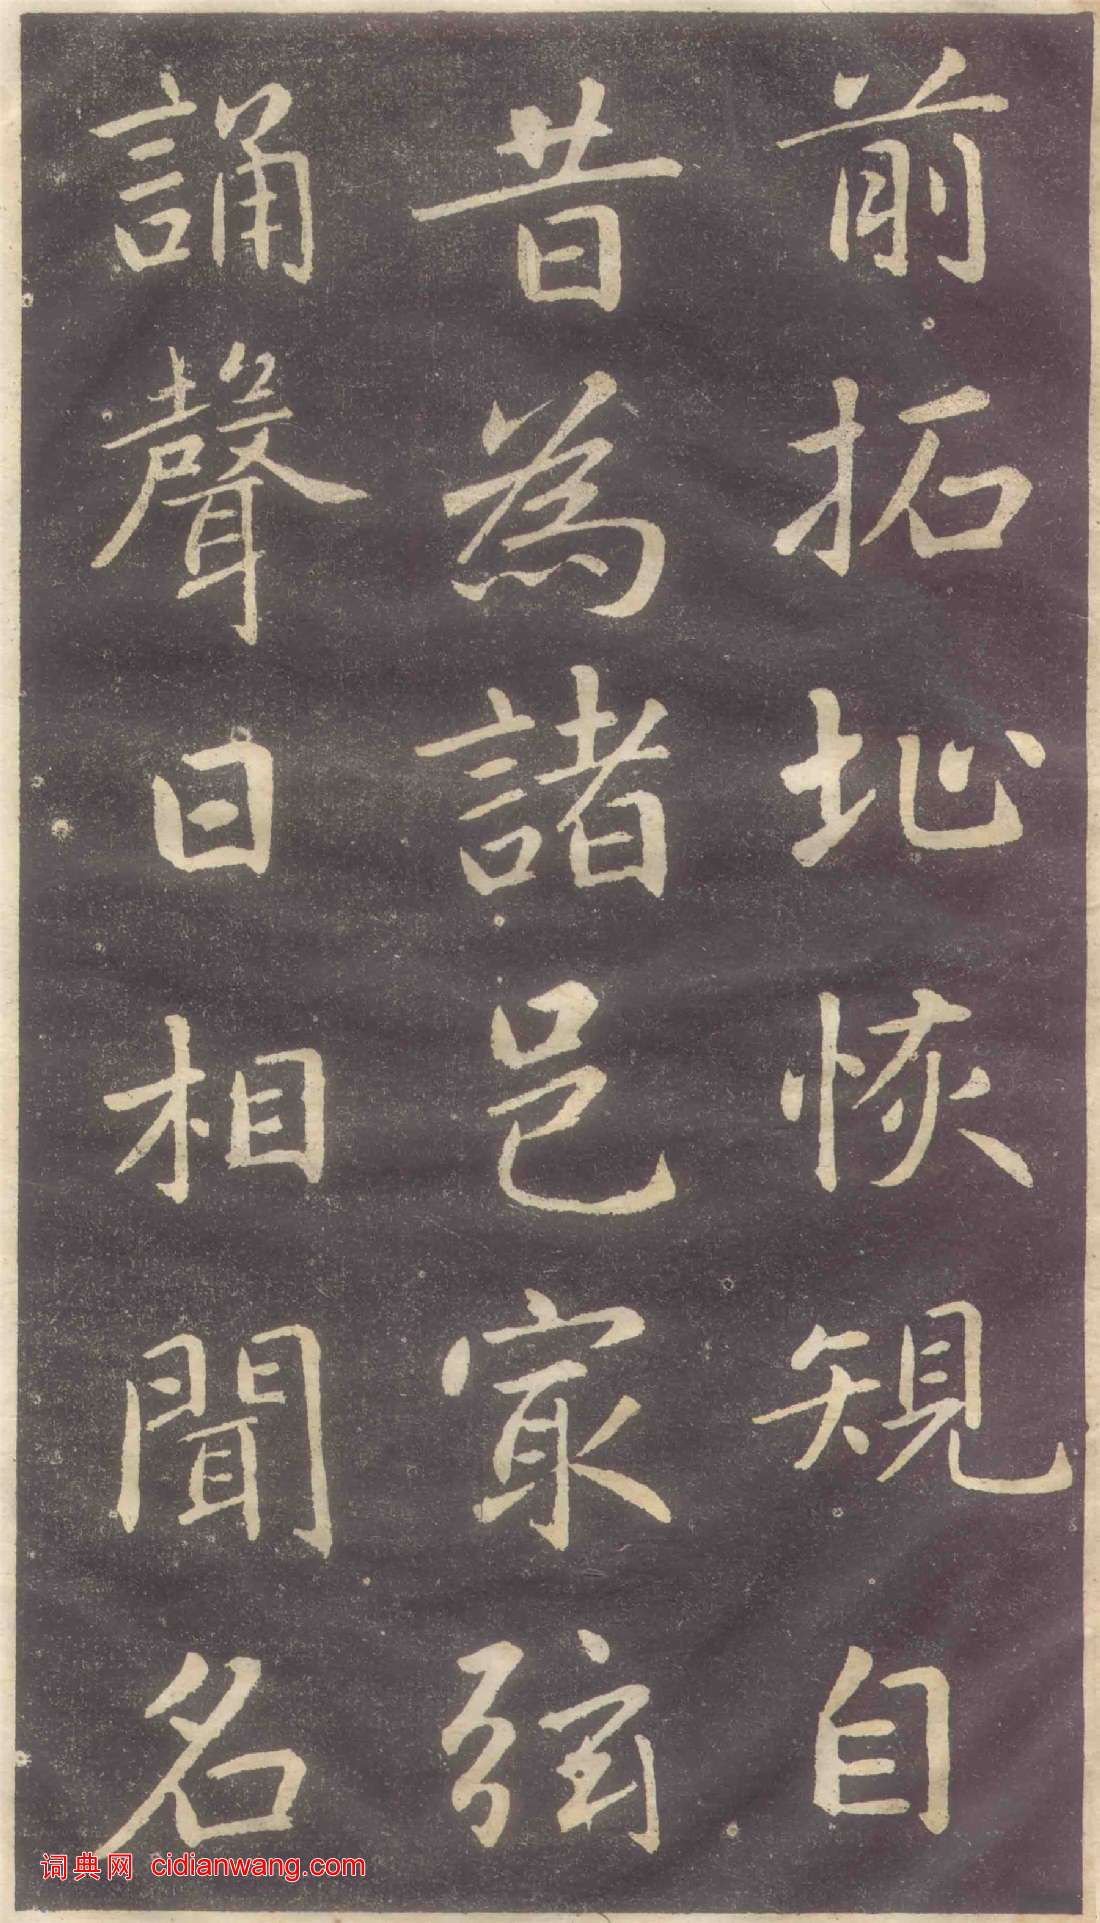 前拓址恢䂓自
昔為諸邑㝡弦
誦聲日相聞名
词典网 cidianwang.com